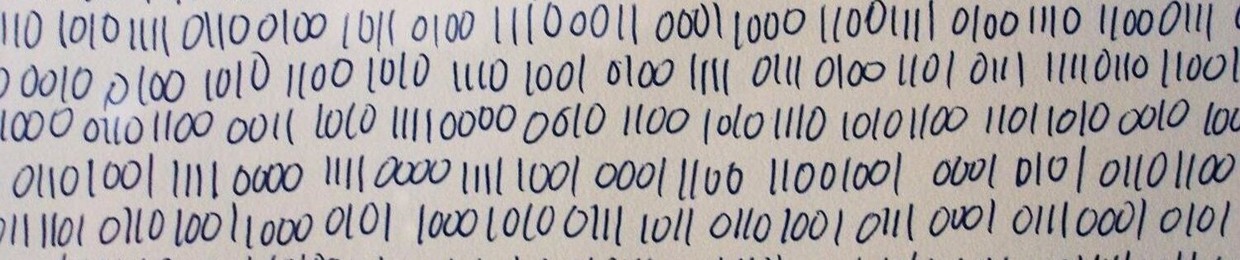 110 1010 1111 0110 0100 1011 0100 1111 0 0011 0001 1000 1100 1111 0100 1110 1100 0111
0010 0100 1010 1100 1010 1110 1001 0100 1111 0111 0100 1101 0111 1111 0110 11001
1000 0110 1100 0011 1010 1111 0000 0010 1100 1010 1110 1010 1100 1101 1010 0010 100
0110 1001 1111 0000 1111 0000 1111 1001 0001 1100 1100 1001 0001 0101 0110 1100
0111 1101 0110 1001 1000 0101 1000 1010 0111 1011 0110 1001 0111 0001 0111 0001 0101